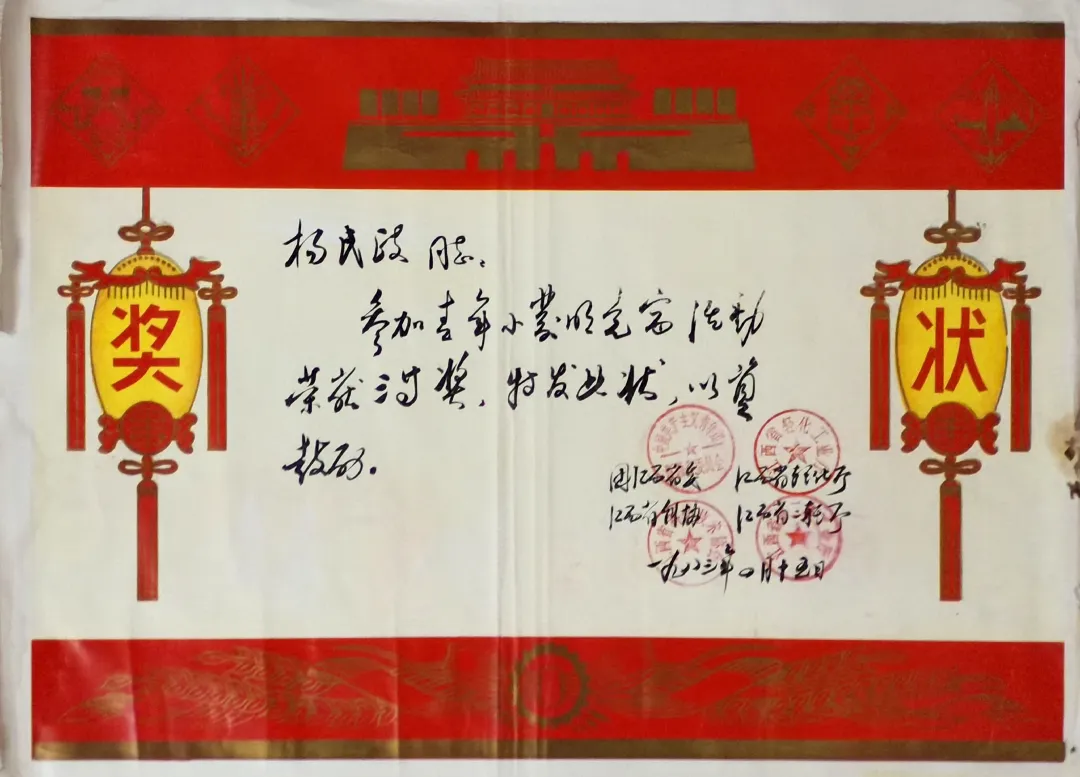 奖
状
杨民政 同志:
参加青年小发明竞赛活动
荣获三等奖,特发此状,以资
鼓励。
团江西省委 江西省轻化厅
江西省科协 江西省二轻厅
一九八三年四月十五日
西省轻化工业